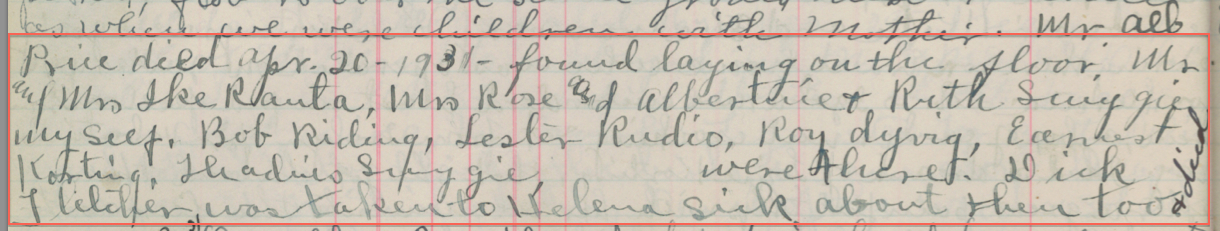 as when we were children with Mother. Mr alb
Rice died apr. 20-1931- found laying on the floor, Mr.
and Mrs Ike Rauta, Mrs Rose and Albertine & Ruth Swiggie
myself, Bob Riding, Lester Rudio, Roy dyrvig, Earnest
Korting, Thadius Swiggie, were there. Dick
Fletcher was taken to Helena sick about then too & died